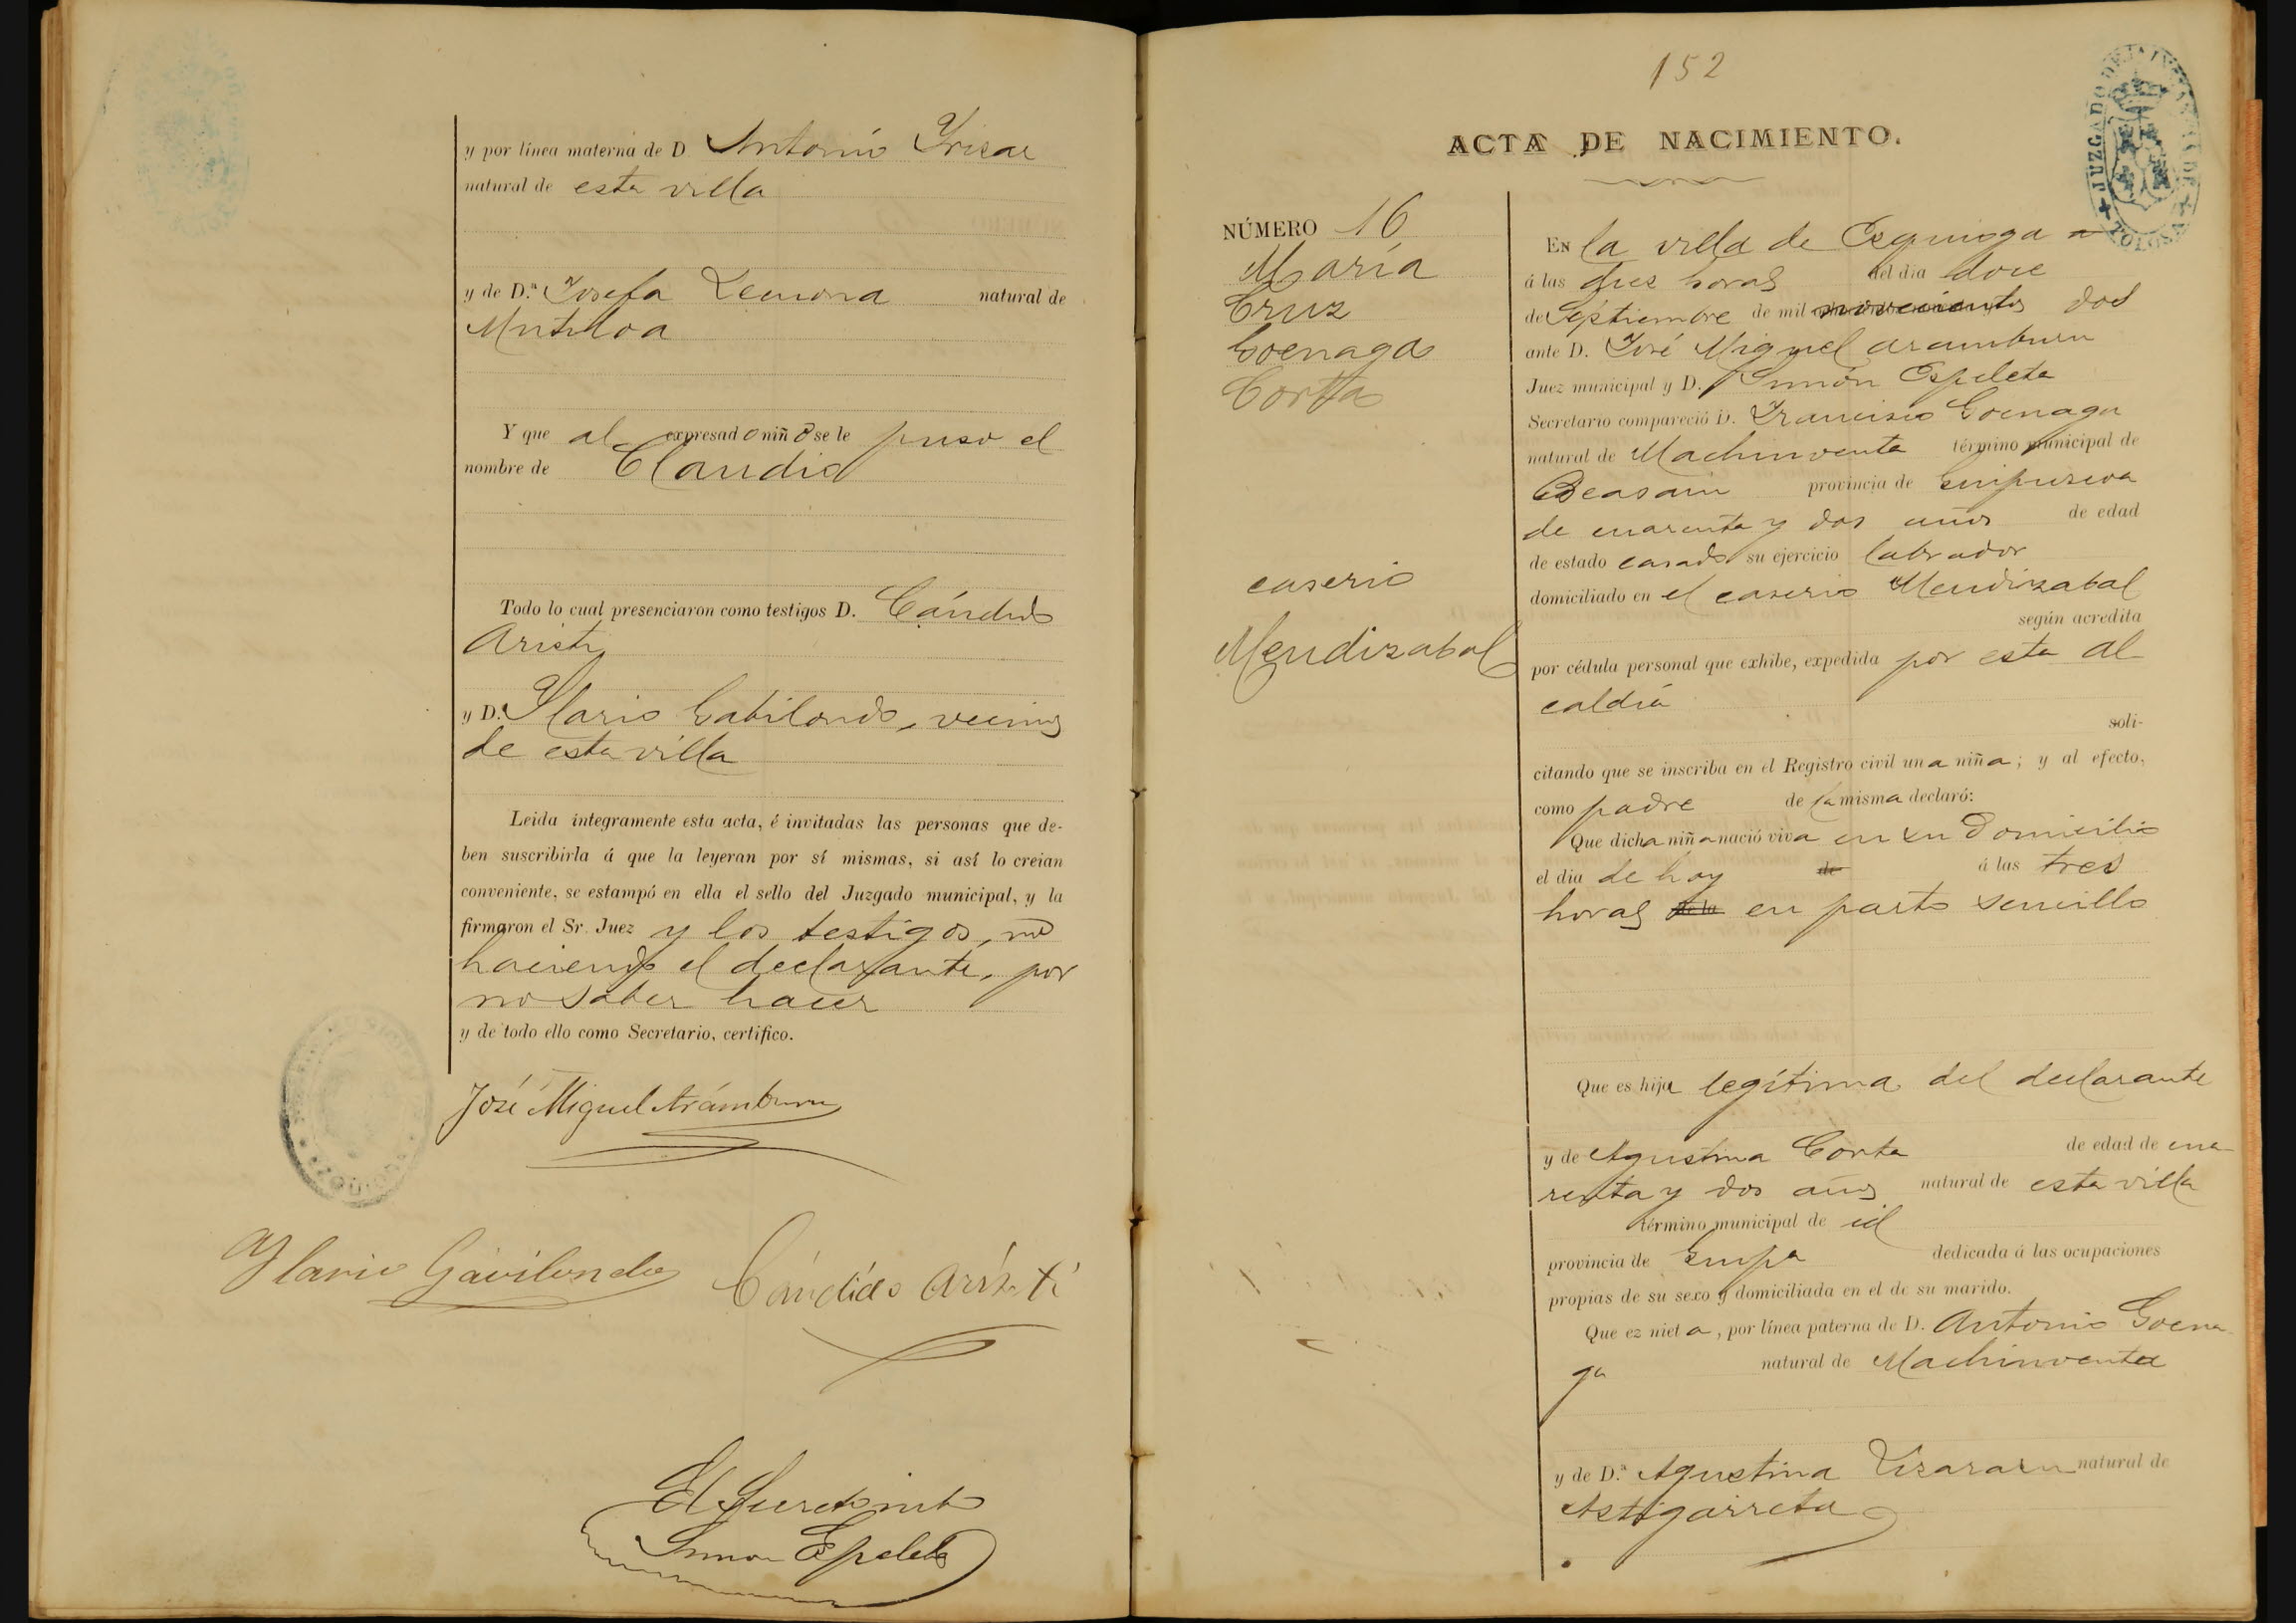 y por línea materna de D Antonio Yrizar
natural de esta villa
y de D.ª Josefa Lemona natural de
Mutiloa
Y que al expresado niño se le puso el
nombre de Claudio
Todo lo cual presenciaron como testigos D. Cándido
Aristi
y D. Ylario Gabilondo, vecinos
de esta villa
Leida integramente esta acta, é invitadas las personas que de-
ben suscribirla á que la leyeran por sí mismas, si así lo creian
conveniente, se estampó en ella el sello del Juzgado municipal, y la
firmaron el Sr. Juez y los testigos, no
haciendo el declarante, por
no saber hacer
y de todo ello como Secretario, certifico.
José Miguel Arámburu
Ylario Gavilondo Cándido Aristi
El Secretario
Simon Espeleta
152
ACTA DE NACIMIENTO.
JUZGADO DE 1ª INSTANCIA DE TOLOSA
NÚMERO 16
María
Cruz
Goenaga
Corta
caserio
Mendizabal
EN la villa de Ezquioga a
á las diez horas del dia doce
de Septiembre de mil novecientos dos
ante D. José Miguel Aramburu
Juez municipal y D. Simón Espeleta
Secretario compareció D. Francisco Goenaga
natural de Machinventa término municipal de
Beasain provincia de Guipuzcoa
de cuarenta y dos años de edad
de estado casado su ejercicio labrador
domiciliado en el caserio Mendizabal
según acredita
por cédula personal que exhibe, expedida por esta Al
caldía
soli-
citando que se inscriba en el Registro civil una niña; y al efecto,
como padre de la misma declaró:
Que dicha niña nació viva en su domicilio
el dia de hoy de á las tres
horas de la en parto sencillo
Que es hija legítima del declarante
y de Agustina Corta de edad de cua
renta y dos años natural de esta villa
término municipal de id
provincia de Guipa dedicada á las ocupaciones
propias de su sexo y domiciliada en el de su marido.
Que ez nieta, por línea paterna de D. Antonio Goena
ga natural de Machinventa
y de D.ª Agustina Lizarazu natural de
Astigarreta